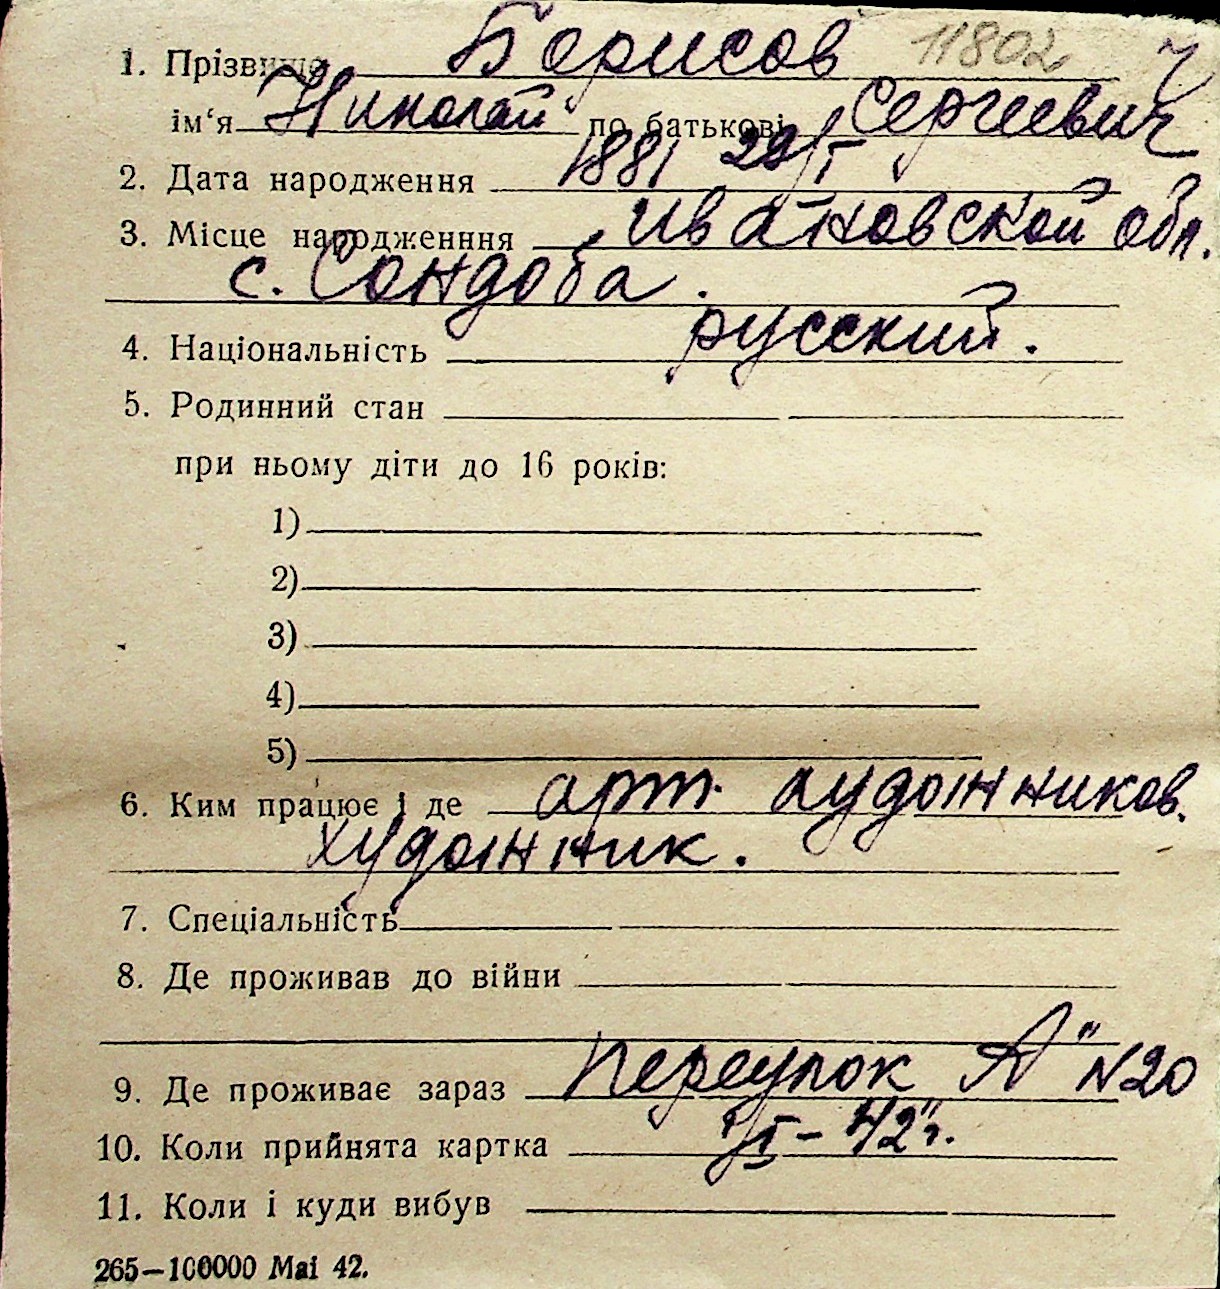 1. Прізвище Борисов 11802
ім‘я Николай по батькові Сергеевич
2. Дата народження 1881 29/I
3. Місце народженння Ивановской обл.
с. Сондоба.
4. Національність русский.
5. Родинний стан
при ньому діти до 16 років:
1)
2)
3)
4)
5)
6. Ким працює і де арт. художников.
художник.
7. Спеціальність
8. Де проживав до війни
9. Де проживає зараз переулок "А" N20
10. Коли прийнята картка 1/I – 42 г.
11. Коли і куди вибув
265—100000 Mai 42.